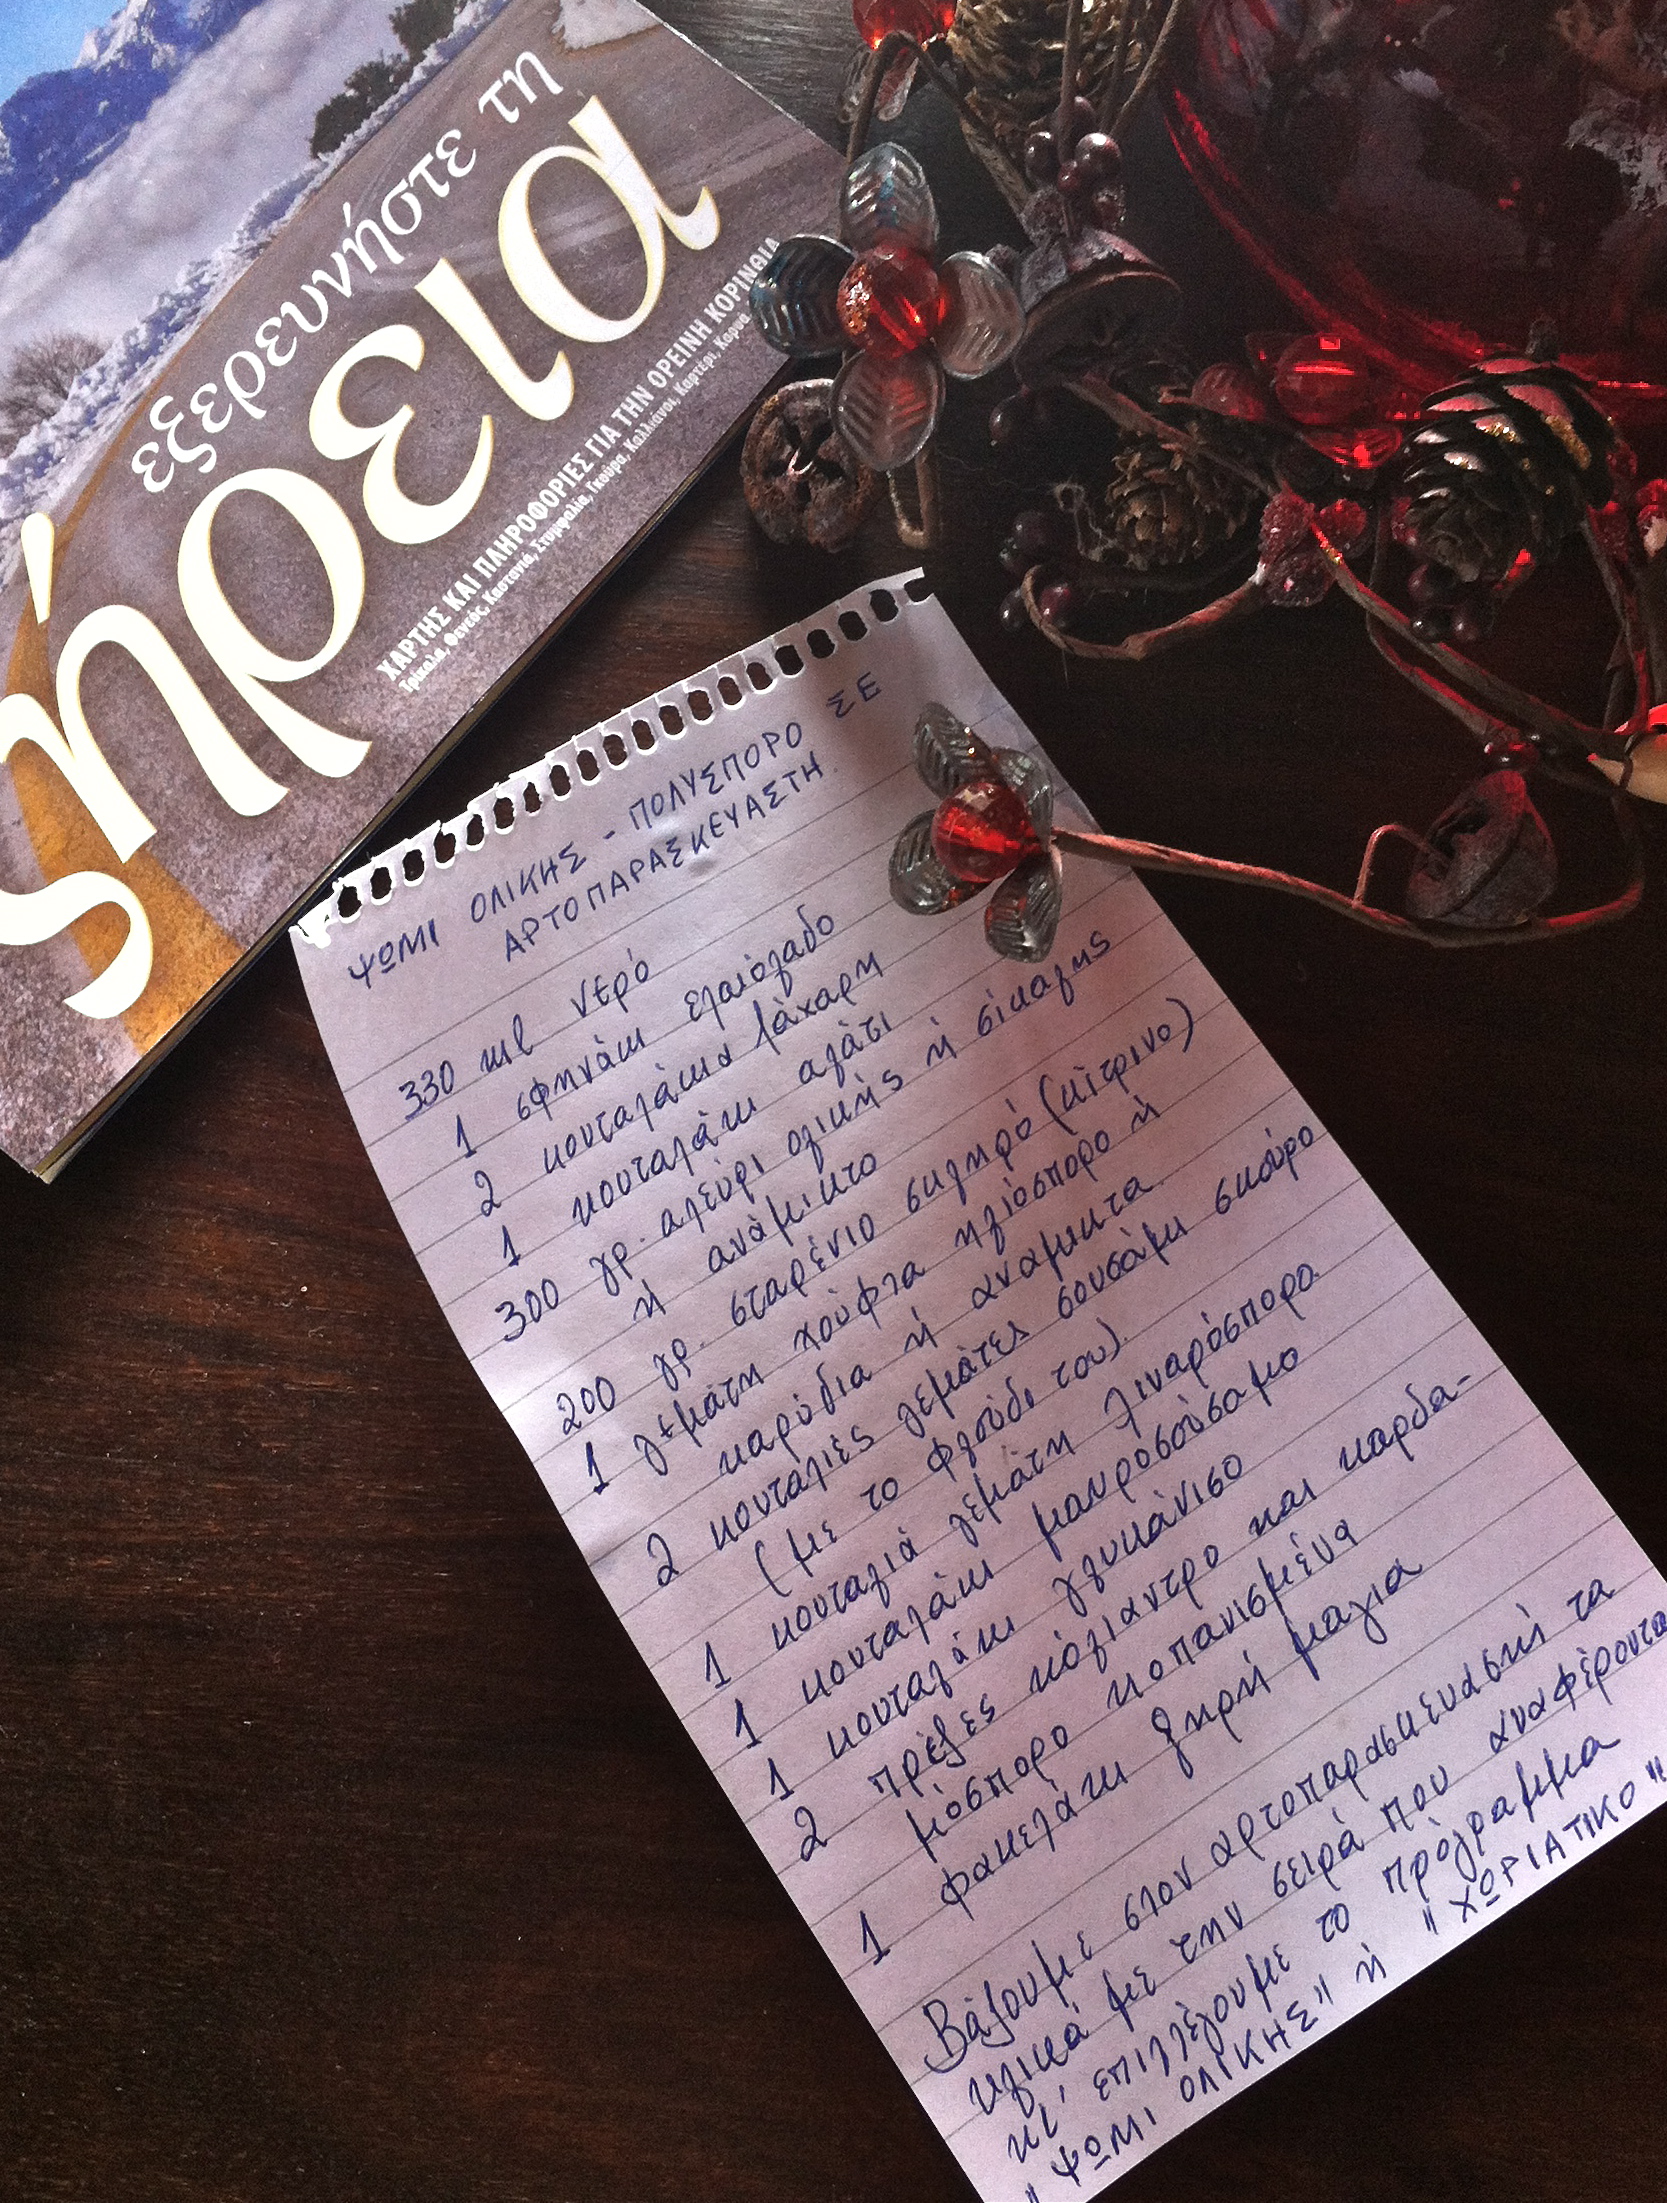 εξερευνήστε τη
ήρεια
ΧΑΡΤΗΣ ΚΑΙ ΠΛΗΡΟΦΟΡΙΕΣ ΓΙΑ ΤΗΝ ΟΡΕΙΝΗ ΚΟΡΙΝΘΙΑ
Τρίκαλα, Φενεός, Καστανιά, Στυμφαλία, Γκούρα, Καλλιάνοι, Καρτέρι, Καρυά
ς
ΨΩΜΙ ΟΛΙΚΗΣ - ΠΟΛΥΣΠΟΡΟ ΣΕ
ΑΡΤΟΠΑΡΑΣΚΕΥΑΣΤΗ
330 ml νερό
1 σφηνάκι ελαιόλαδο
2 κουταλάκια ζάχαρη
1 κουταλάκι αλάτι
300 γρ. αλεύρι ολικής ή σίκαλης
ή ανάμικτο
200 γρ. σταρένιο σκληρό (κίτρινο)
1 γεμάτη χούφτα ηλιόσπορο ή
καρύδια ή αναμικτα
2 κουταλιές γεμάτες σουσάμι σκούρο
(με το φλούδι του)
1 κουταλιά γεμάτη λιναρόσπορο
1 κουταλάκι μαυροσούσαμο
1 κουταλάκι γλυκάνισο
2 πρέζες κόλιαντρο και καρδα-
μόσπορο κοπανισμένα
1 φακελάκι ξηρή μαγιά
Βάζουμε στον αρτοπαρασκευαστή τα
υλικά με την σειρά που αναφέρονται
κι' επιλλέγουμε το πρόγραμμα
"ΨΩΜΙ ΟΛΙΚΗΣ" ή "ΧΩΡΙΑΤΙΚΟ"